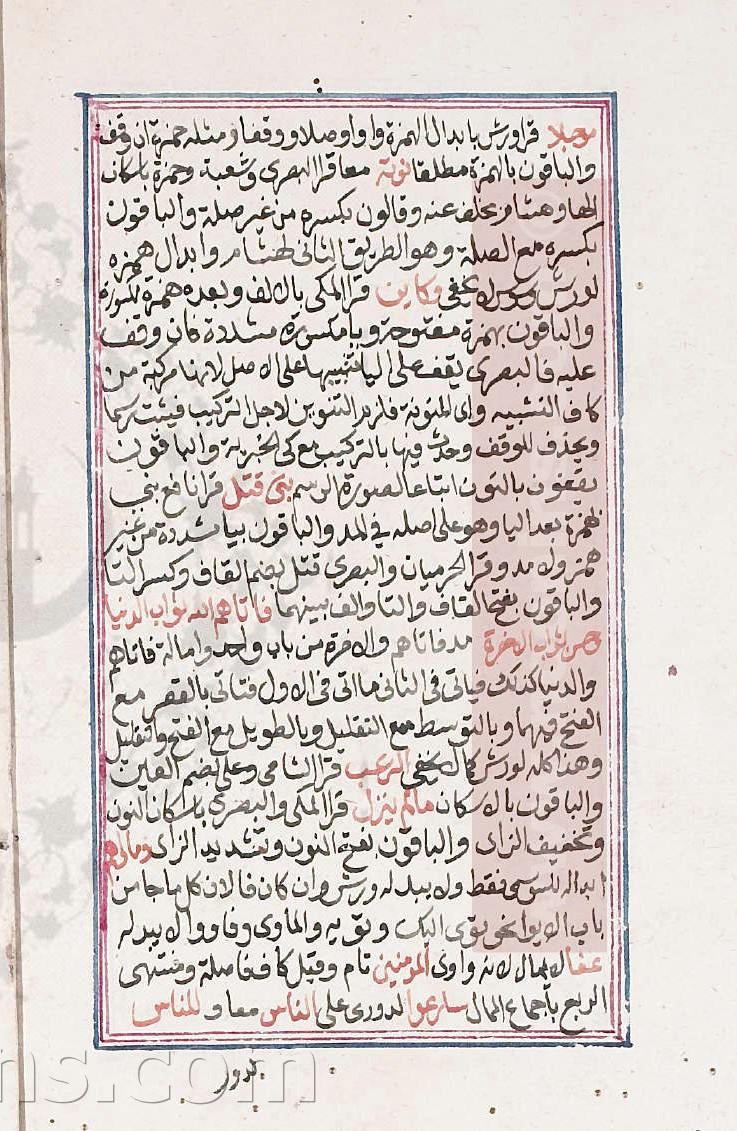 موجلا قرا ورش بابدال الهمزة واوا وصلا ووقفا ومثله حمزة ان وقف
والباقون بالهمزة مطلقا نوته معا قرا البصري وشعبة وحمزة باسكان
الها وهشام بخلف عنه وقالون بكسره من غير صلة والباقون
بكسره مع الصلة وهو الطريق الثاني لهشام وابدال همزه
لورش وسوس لا يخفى وكاين قرا المكي بالالف وبعده همزة مكسورة
والباقون بهمزة مفتوحة ويا مكسورة مشددة فان وقف
عليه فالبصري يقف على اليا تنبيها على الاصل لانها مركبة من
كاف التشبيه واي المنونة فلزيد التنوين لاجل التركيب فيثبت رسما
ويحذف للوقف وحدث فيها بالتركيب مع كي الخبرية والباقون
يقفون بالنون اتباعا لصورة الرسم نبي قتل قرا نافع نبي
بهمزة بعد اليا وهو على اصله في المد والباقون بيا مشددة من غير
همز ولا مد وقرا الحرميان والبصري قتل بضم القاف وكسر التا
والباقون بفتح القاف والتا والف بينهما فاتاهم الله ثواب الدنيا
وحسن ثواب الاخرة مد فاتاهم والاخرة من باب واحد وامالة فاتاهم
والدنيا كذلك فياتي في الثاني ما اتى في الاول فتاتي بالقصر مع
الفتح فيهما وبالتوسط مع التقليل وبالطويل مع الفتح والتقليل
وهذا كله لورش كما لا يخفى الرعب قرا الشامي وعلي بضم العين
والباقون بالاسكان مالم ينزل قرا المكي والبصري باسكان النون
وتخفيف الزاي والباقون بفتح النون وتشديد الزاي وماواهم
ابداله للسوسي فقط ولا يبدله ورش وان كان فا لان كل ما جا من
باب الايوا نحو تؤوي اليك وتؤويه والماوى وفاووا لا يبدله
عفا لا يمال لانه واوي المومنين تام وقيل كاف فاصلة ومنتهى
الربع باجماع الممال سارعوا لدوري علي الناس معا و للناس
لدور